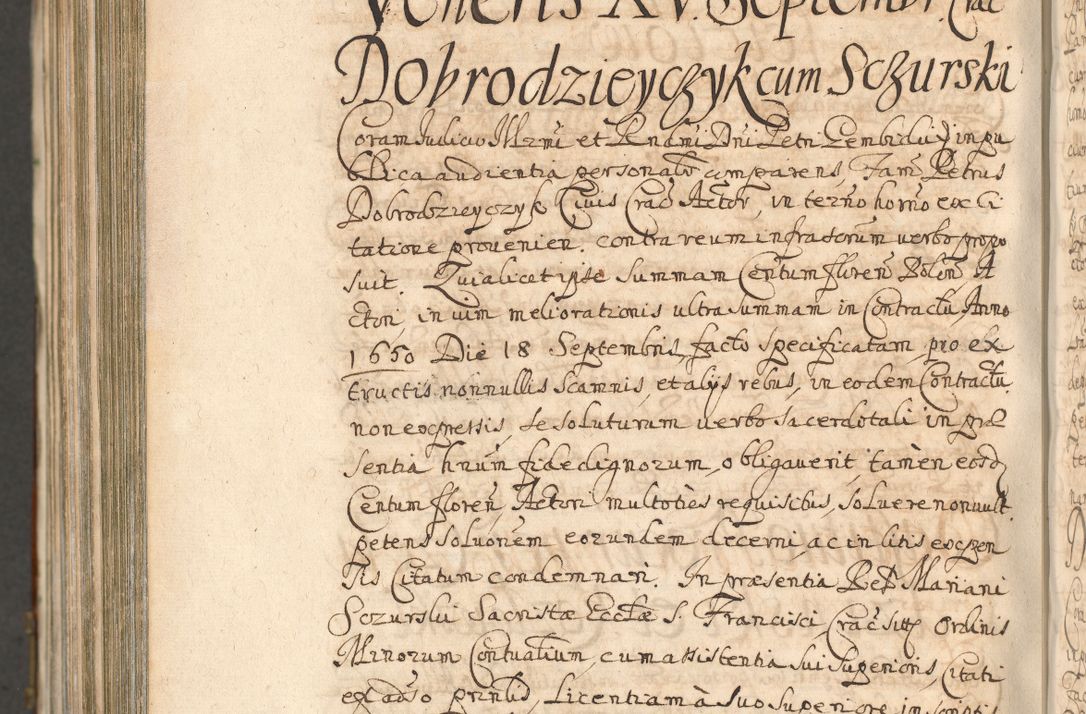 Veneris XV. Septembr. Crac
Dobrodzieyczyk cum Sczurski
Coram Iudicio Illrmi et Rndmi Dni Petri Gembicki in pu
blica audientia personalr comparens, Fam. Petrus
Dobrodzieyczyk Civis Crac Actor, in termo horno ex Ci
tatione provenien. contra reum infrascrum verbo propo
suit. Quia licet ipse summam Centum floren Polon A
ctori in vim meliorationis ultra summam in Contractu Anno
1650 Die 18 Septembris facto specificatam, pro ex
tructis nonnullis scamnis, et alys rebus, in eodem Contractu
non expressis, se soluturum verbo sacerdotali in præ
sentia hnum fide dignorum, obligaverit, tamen eosd
Centum floren Actori multoties requisitus, solvere non vult.
petens solvonem eorundem decerni, ac in litis expen
sis Citatum condemnari. In præsentia Red Mariani
Sczurski Sacristæ Eccłæ S. Francisci, Crac sitt Ordinis
Minorum Contualium, cum assistentia sui superioris, Citati
ex adso prmlib, licentiam à suo superiore in scriptis